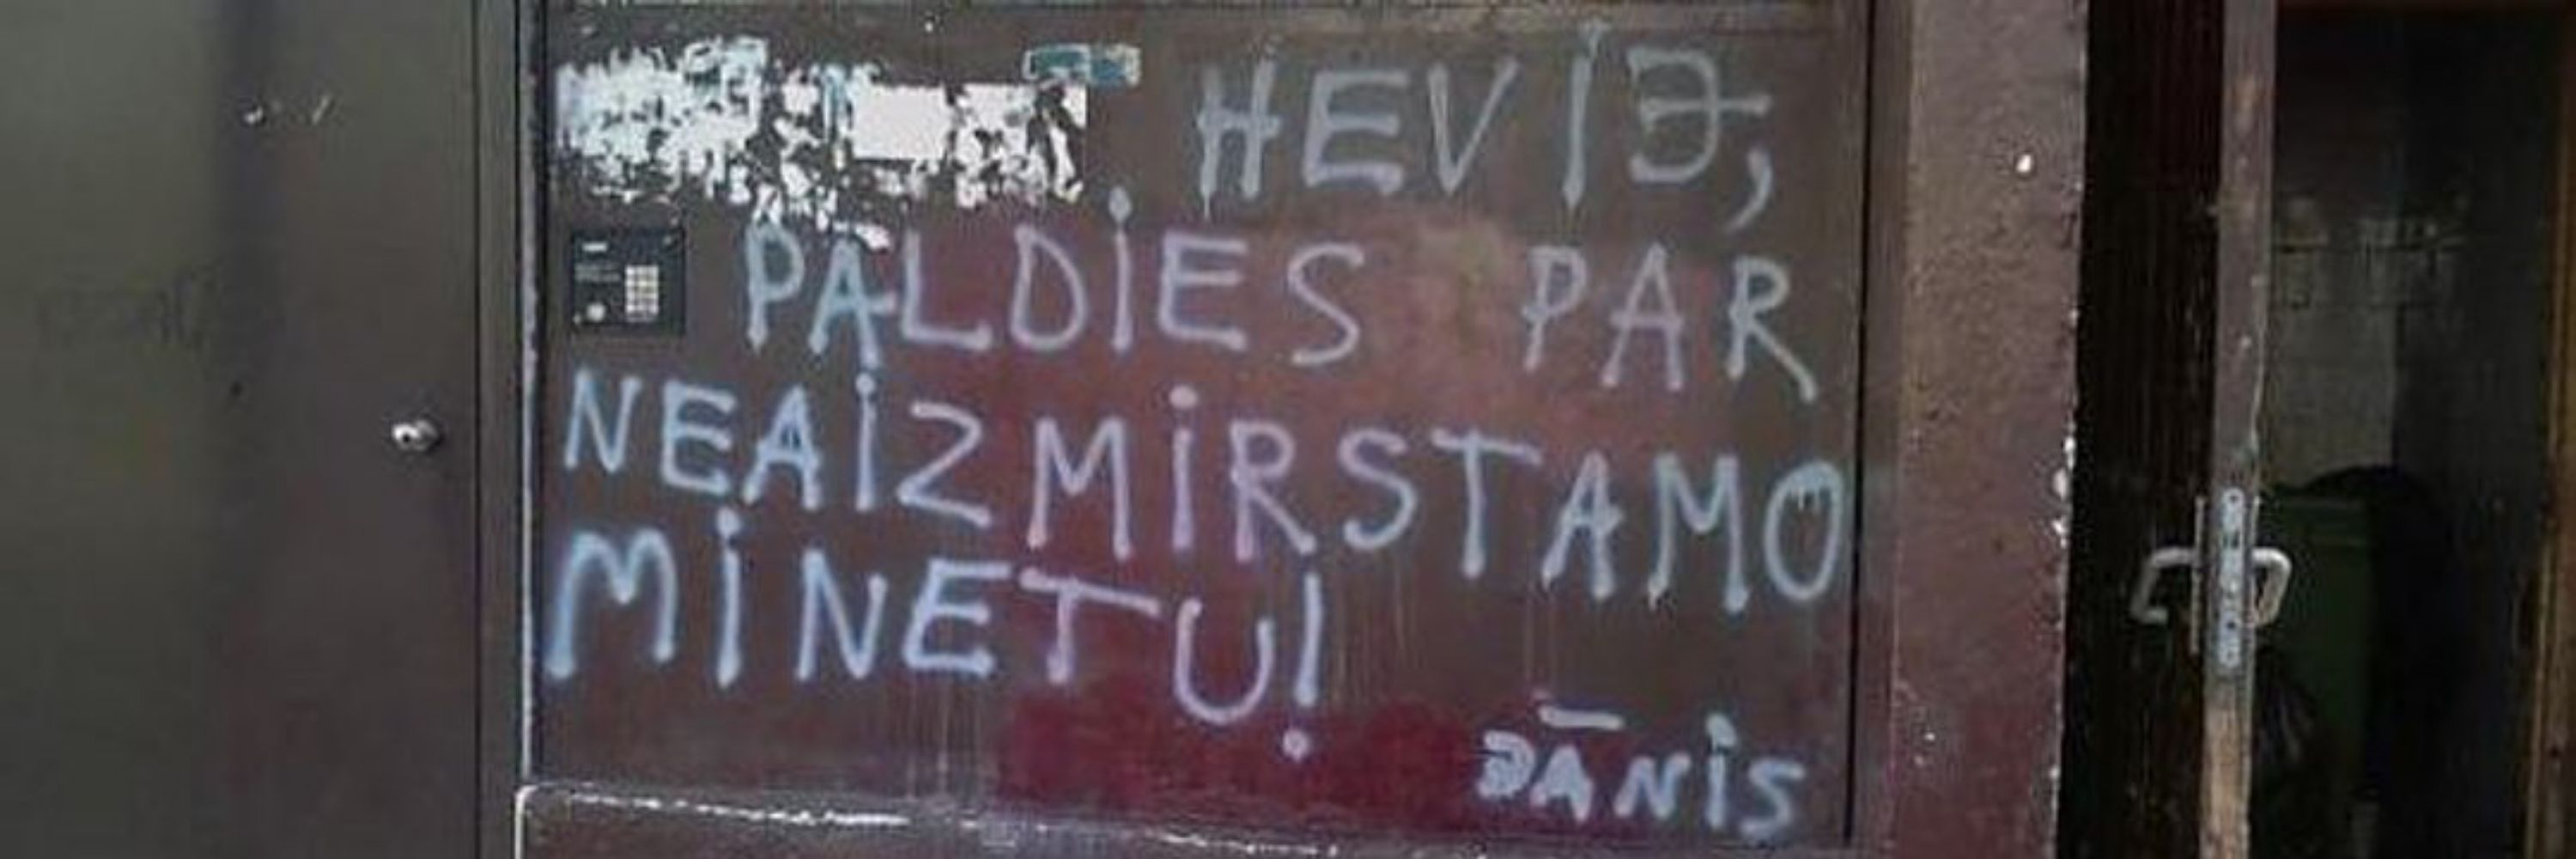 HEVIЭ,
PALDIES PAR
NEAIZMIRSTAMO
MINETU!
JĀNIS